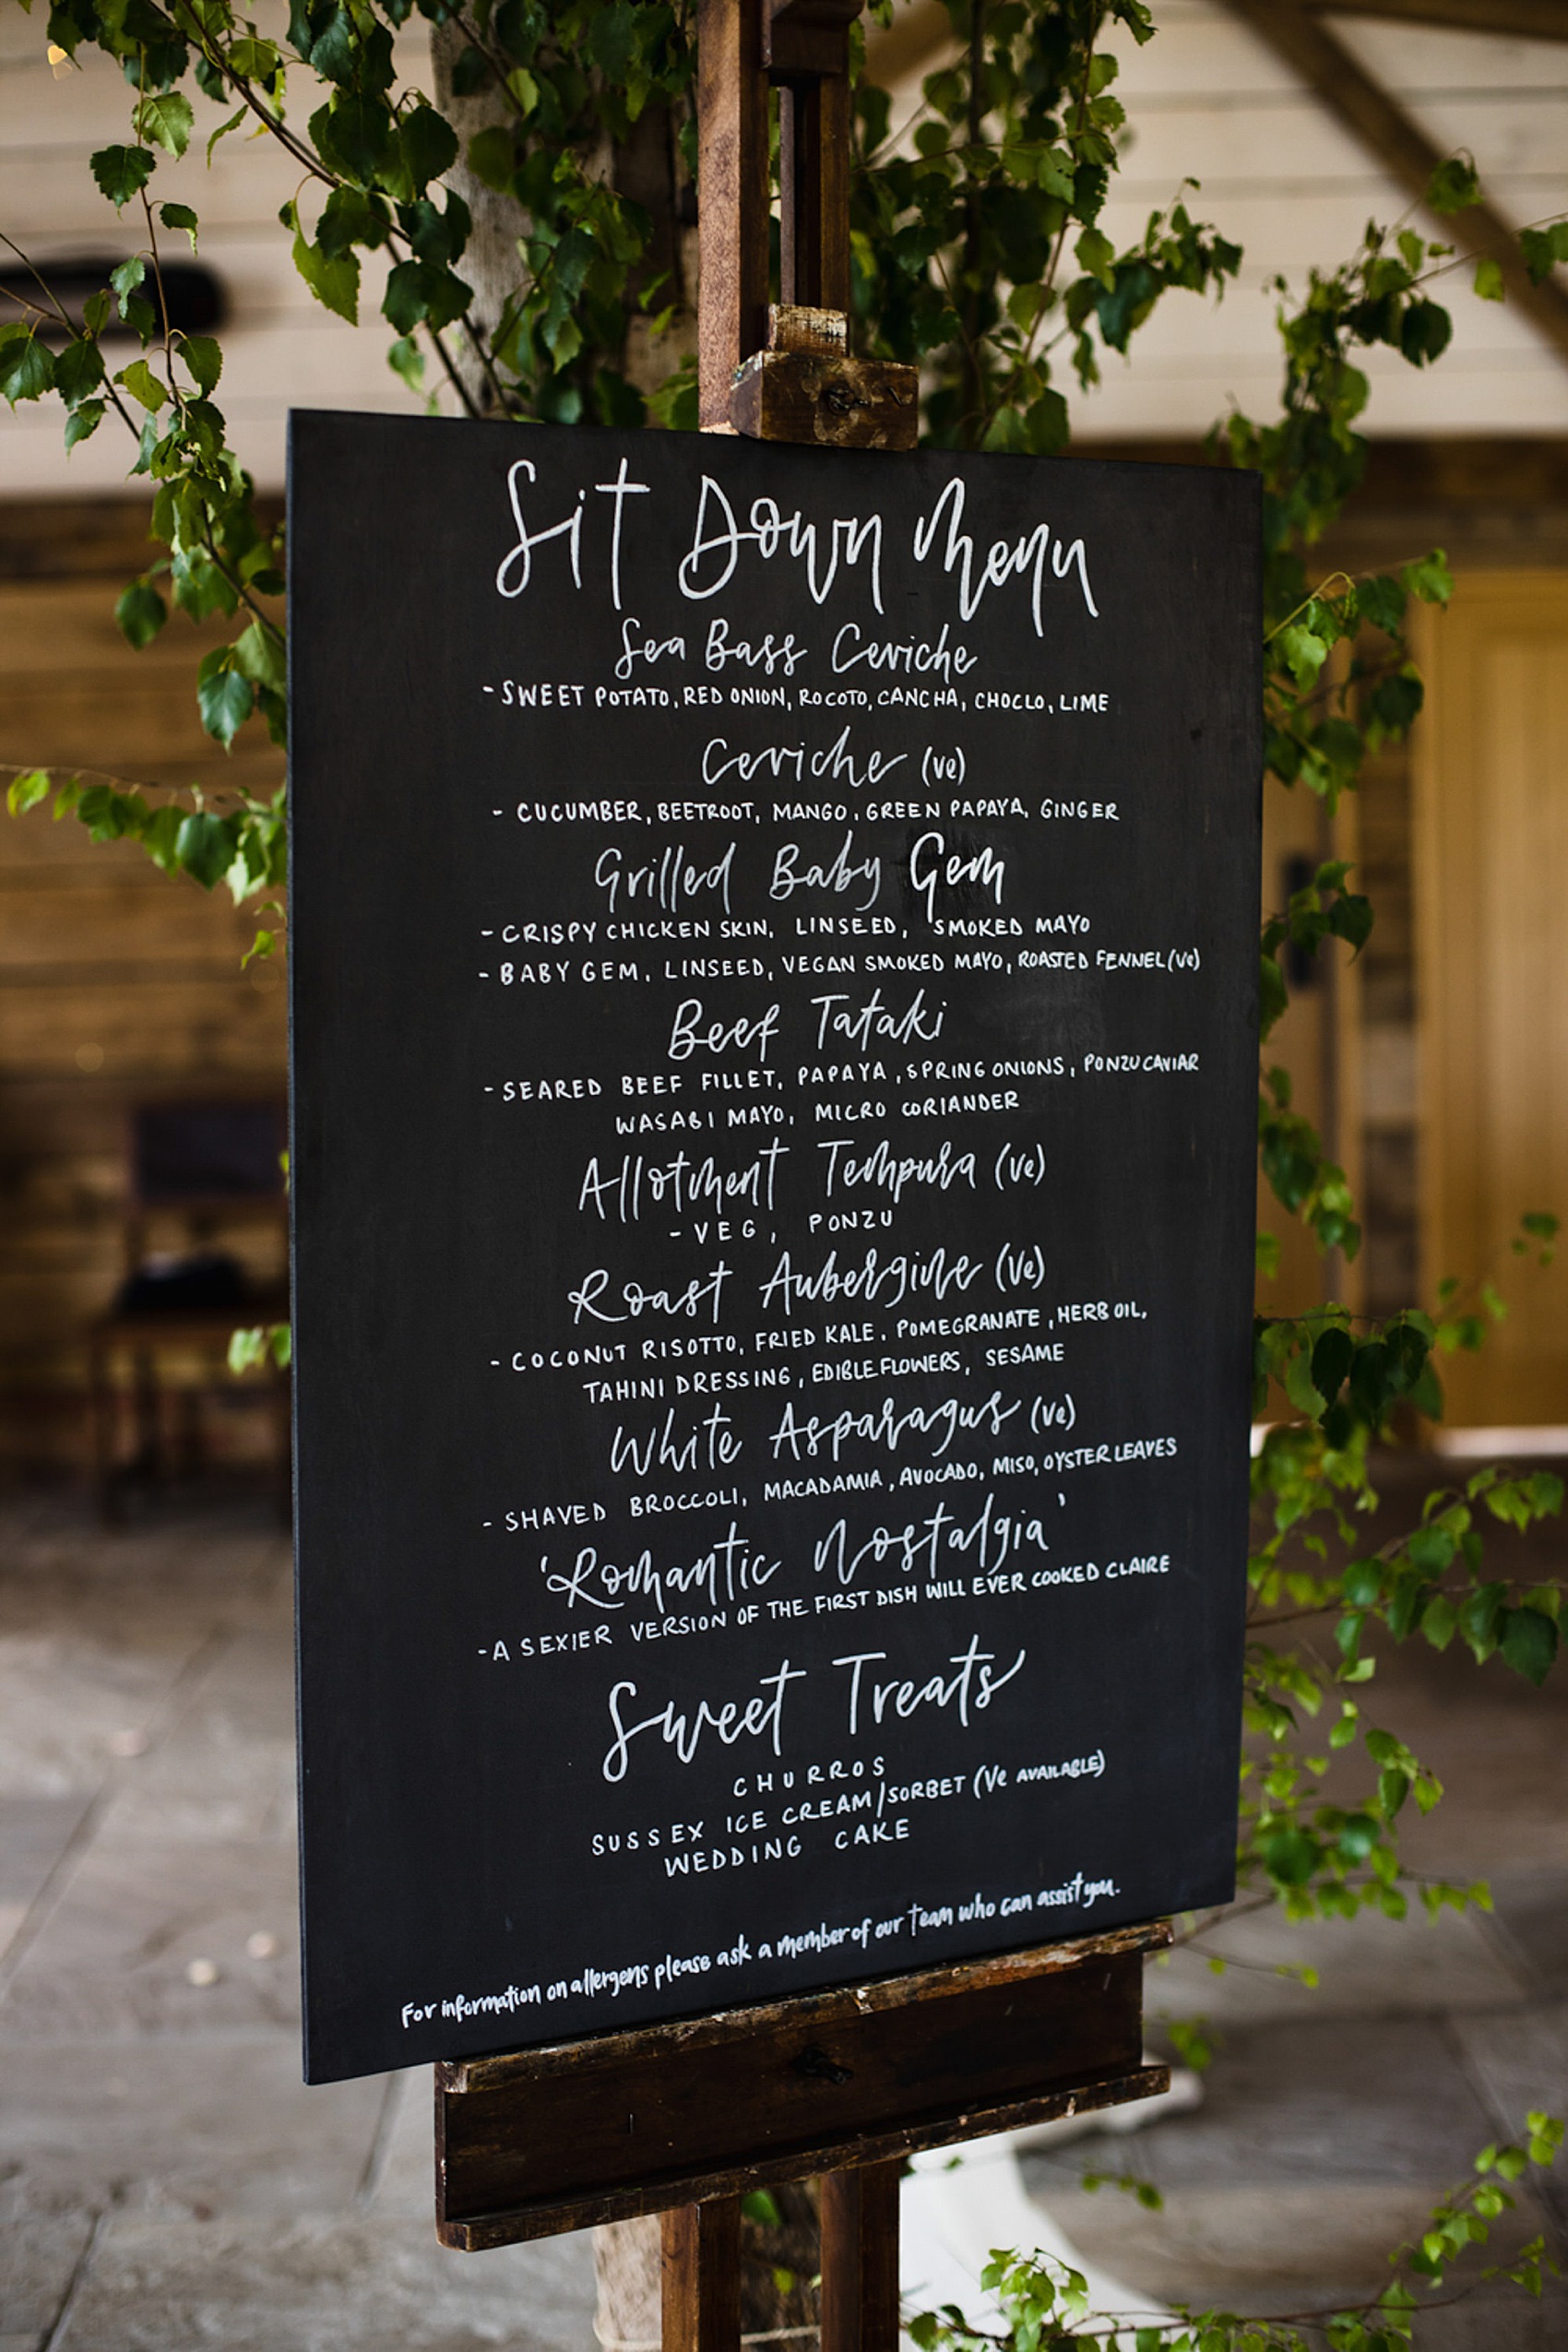 Sit Down Menu
Sea Bass Ceviche
- SWEET POTATO, RED ONION, ROCOTO, CANCHA, CHOCLO, LIME
Ceviche (ve)
- CUCUMBER, BEETROOT, MANGO, GREEN PAPAYA, GINGER
Grilled Baby Gem
- CRISPY CHICKEN SKIN, LINSEED, SMOKED MAYO
- BABY GEM, LINSEED, VEGAN SMOKED MAYO, ROASTED FENNEL (ve)
Beef Tataki
- SEARED BEEF FILLET, PAPAYA, SPRING ONIONS, PONZU CAVIAR
WASABI MAYO, MICRO CORIANDER
Allotment Tempura (ve)
- VEG, PONZU
Roast Aubergine (ve)
- COCONUT RISOTTO, FRIED KALE, POMEGRANATE, HERB OIL,
TAHINI DRESSING, EDIBLE FLOWERS, SESAME
White Asparagus (ve)
- SHAVED BROCCOLI, MACADAMIA, AVOCADO, MISO, OYSTER LEAVES
'Romantic Nostalgia'
- A SEXIER VERSION OF THE FIRST DISH WILL EVER COOKED CLAIRE
Sweet Treats
CHURROS
SUSSEX ICE CREAM/SORBET (Ve AVAILABLE)
WEDDING CAKE
For information on allergens please ask a member of our team who can assist you.